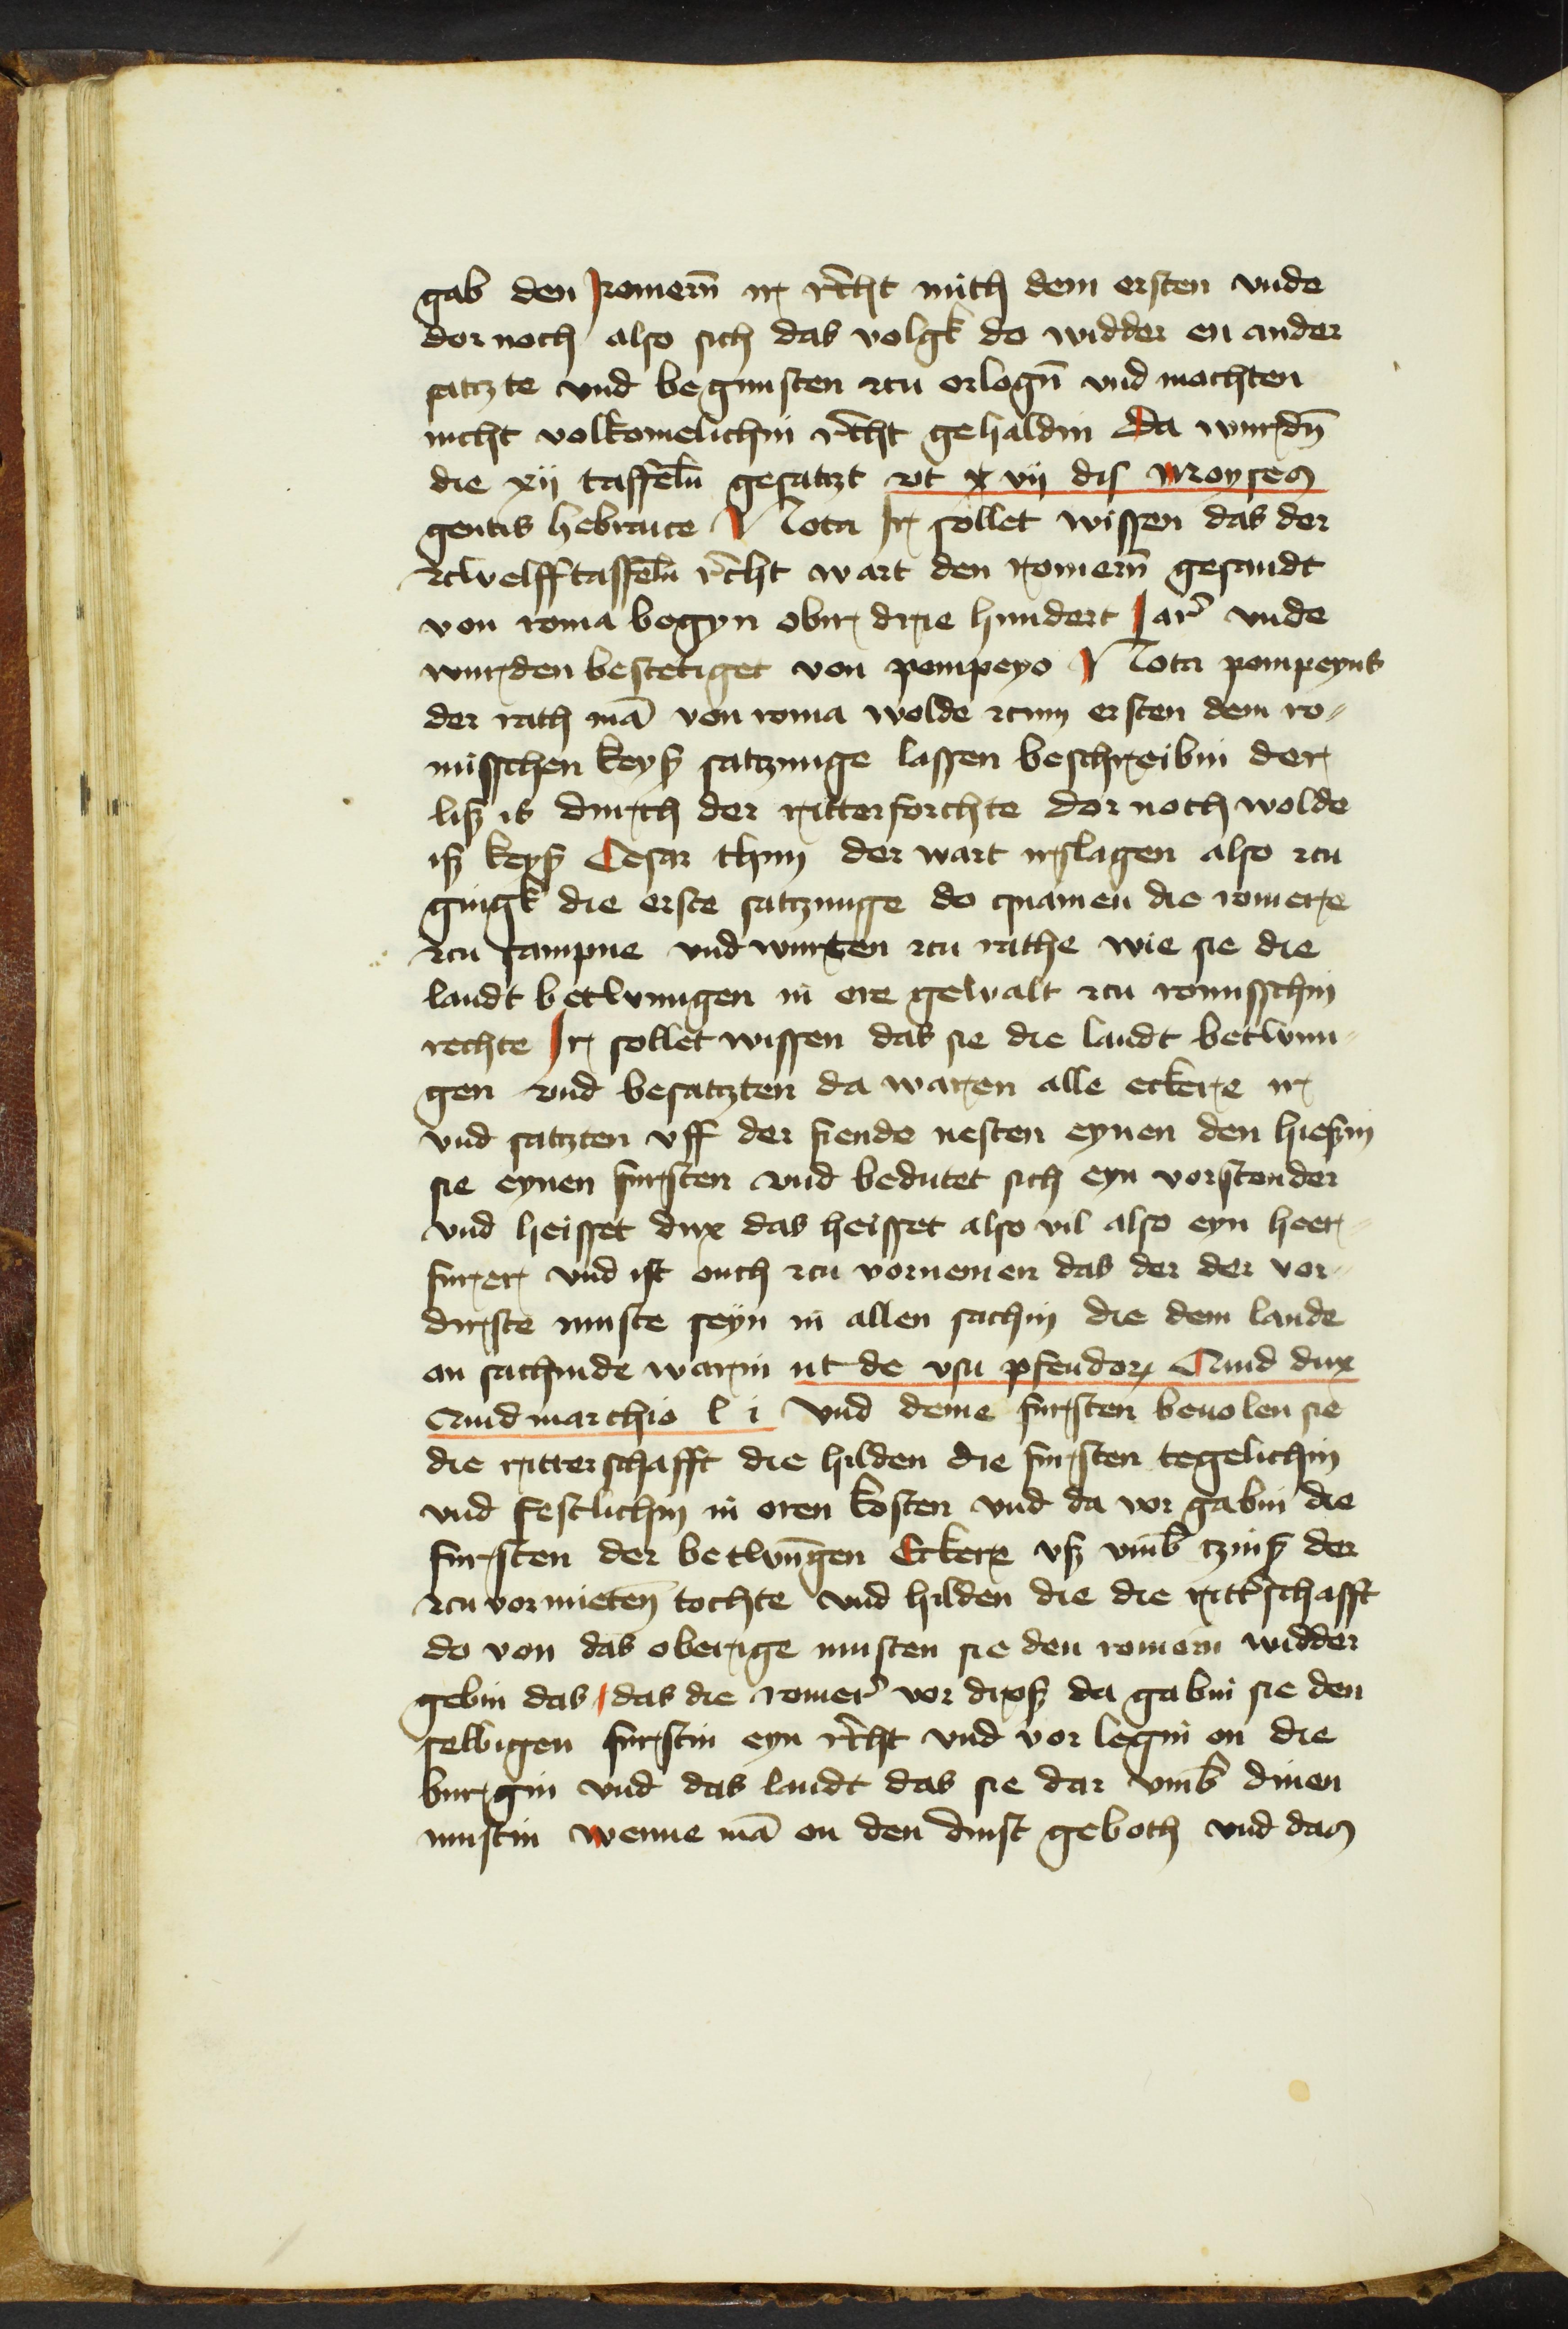 gab den Romern̄ ir r̄cht mith dem ersten vnde
dor noch also sich das volgk do widder en ander
satzte vnd begunsten zcu orlogn̄ vnd mochten
nicht volkomelichin r̄cht gehaldin Da wurdn̄
die xij taffeln̄ gesatzt vt x vij dis Moyses
gentis hebraice Nota Ir sollet wissen das der
zcwelfftaffeln̄ r̄cht wart den Romern̄ gesandt
von roma begyn obir drie hundert Jar vnde
wurden bestetiget von pompeyo Nota pompeyus
der rath mā von roma wolde zcum ersten dem ro-
misschen keyß satzunge lassen beschreibin der
liß is durch der ritter forchte dor noch wolde
iß keyß Cesar thun der wart irslagen also zcu
gingk die erste satzunge do quamen die romere
zcu sampne vnd wurten zcu rathe wie sie die
landt betwungen in ere gewalt zcu romisschin
rechte Ir sollet wissen das sie die landt betwun-
gen vnd besatzten da waren alle eckere ir
vnd satzten vff der fiende nesten eynen den hießin
sie eynen fursten vnd bedutet sich eyn vorstender
vnd heisset dux das heisset also vil also eyn heer-
furer vnd ist ouch zcu vornemen das der der vor-
dirste muste seyn in allen sachin die dem lande
an sachinde warin ut de vsu pfeudor Quid dux
Quid marchio l i Vnd deme fursten beuolen sie
die ritterschafft die hilden die fursten tegelichin
vnd festlichin in oren kosten vnd da vor gabin die
fursten der betwūgen Eckere vß vmb tzinß der
zcu vormieten̄ tochte vnd hilden die die rittschafft
do von das oberige musten sie den romern widder
gebin das das die romer vor droß da gabin sie den
selbigen furstin eyn r̄cht vnd vor legin on die
burgin vnd das landt das sie dar vmb dinen
mustin wenne mā on den dinst geboth vnd das